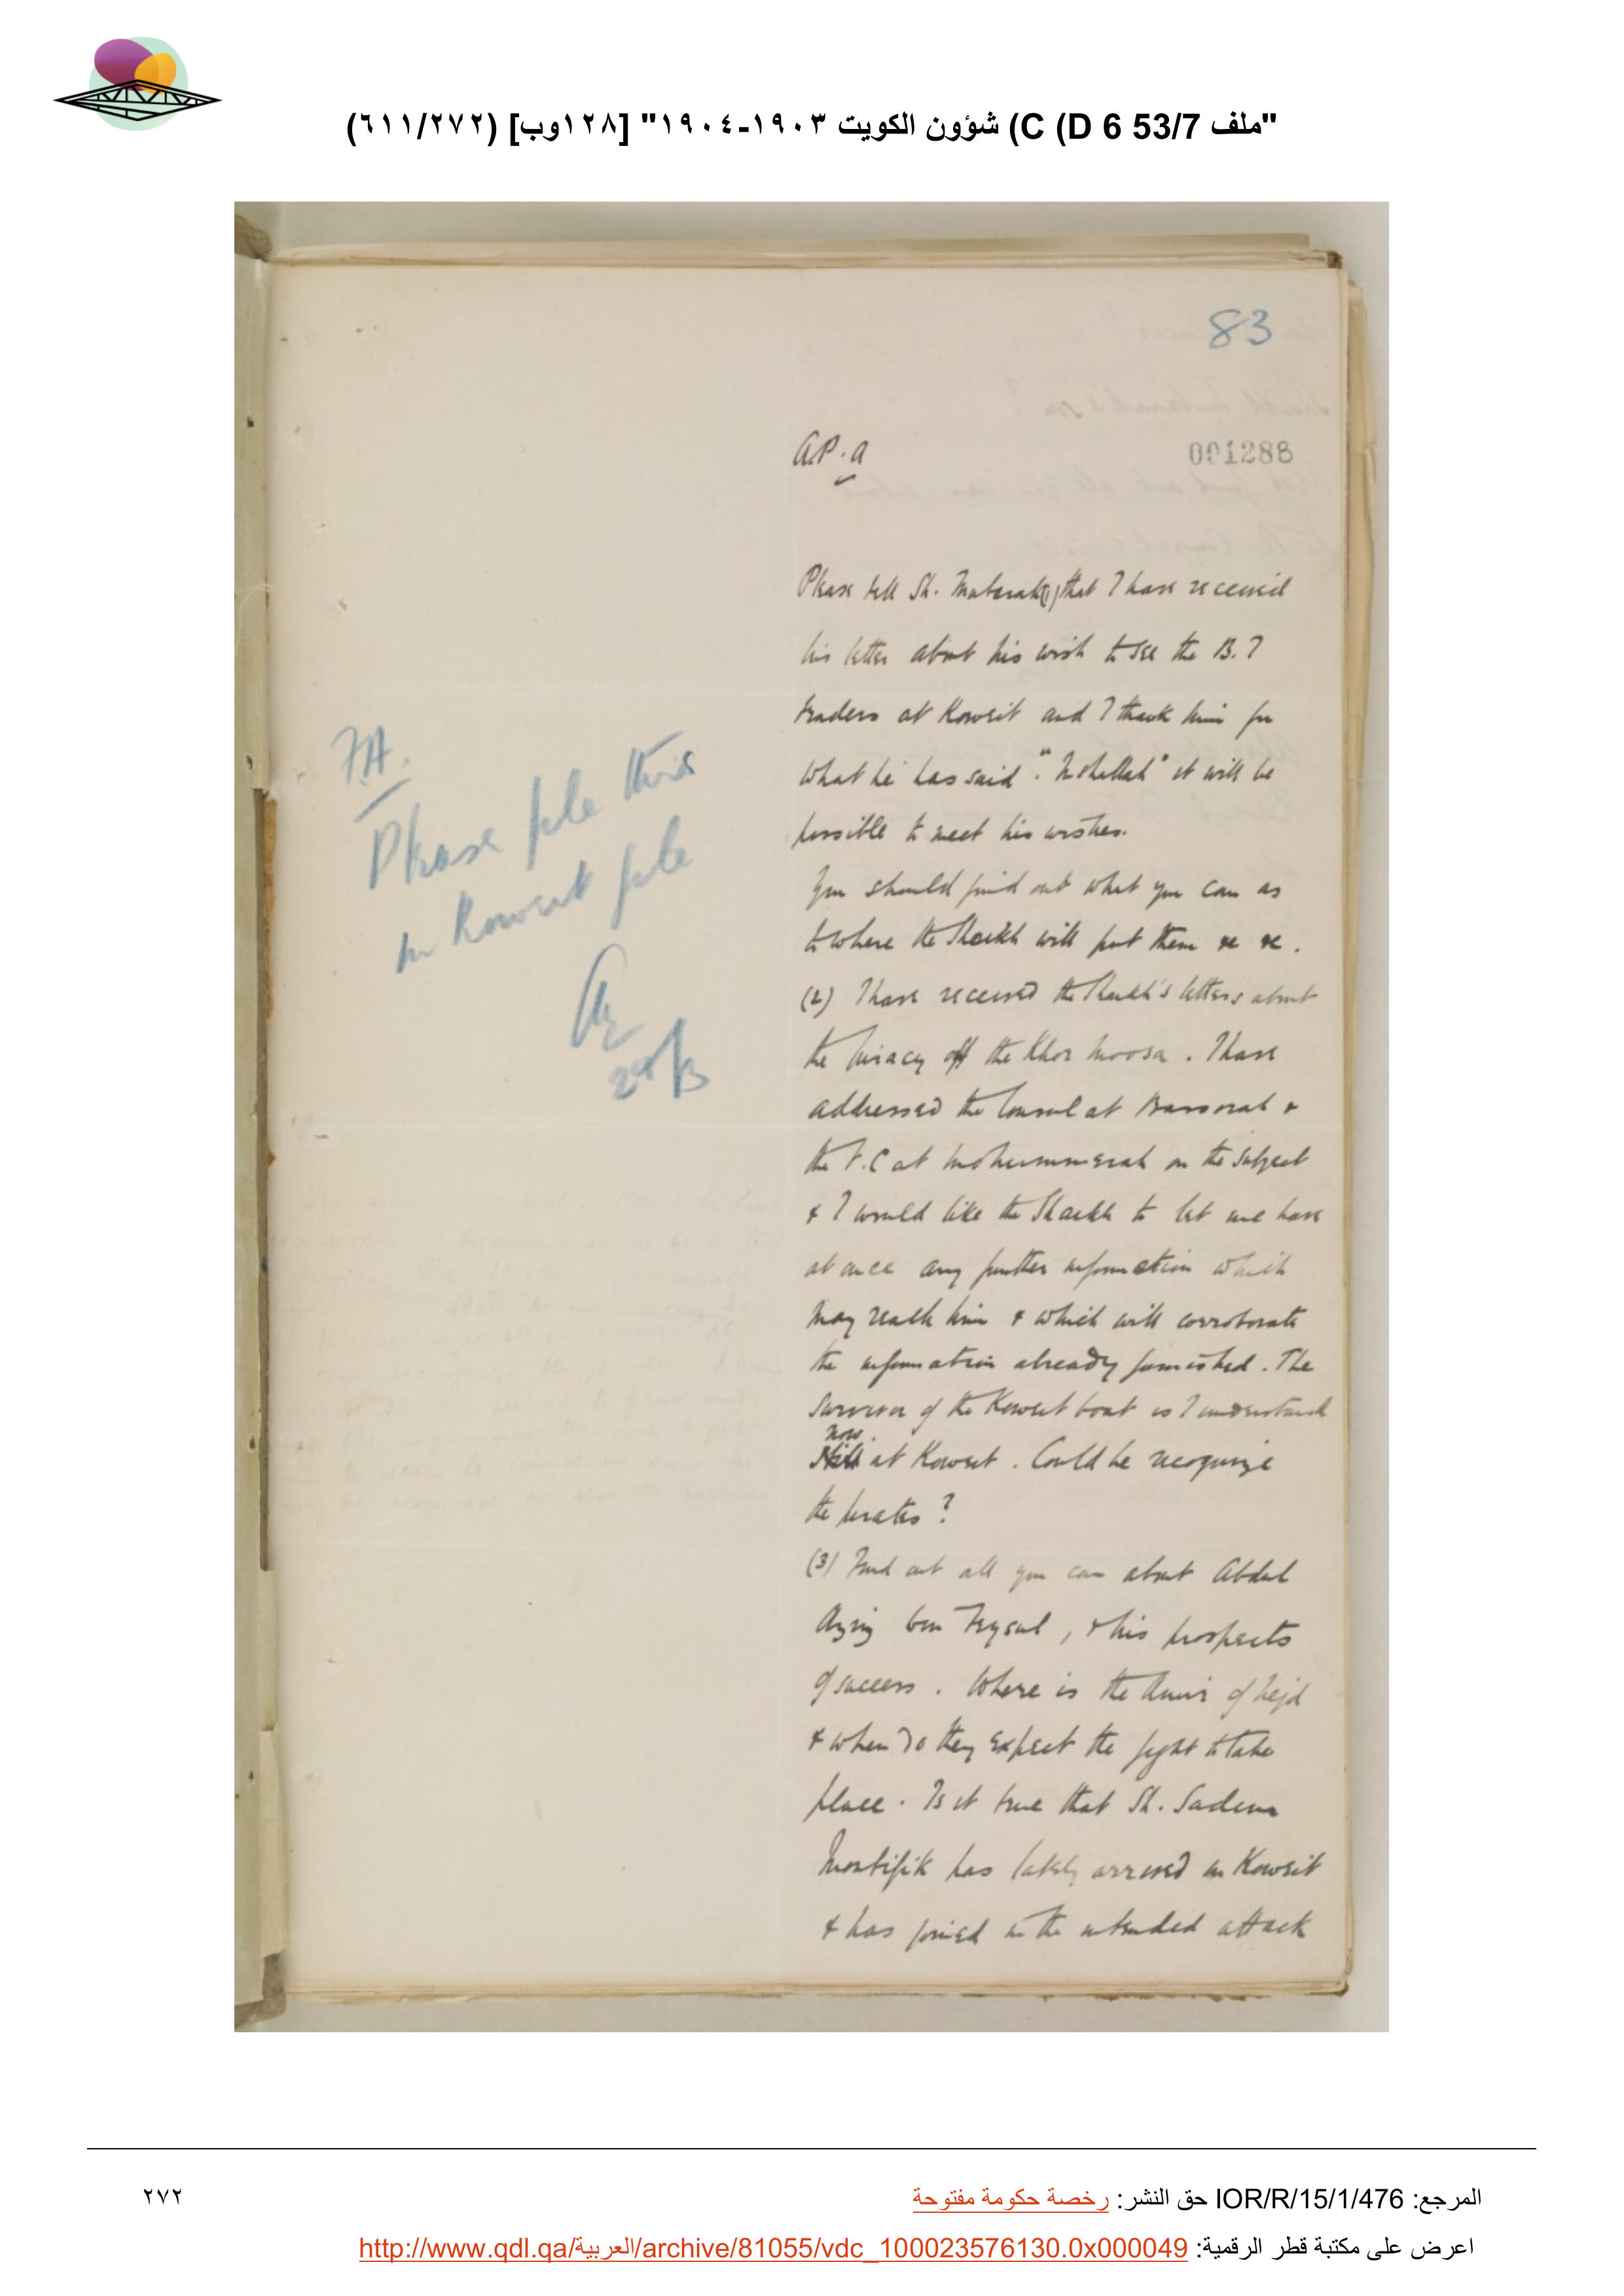 "ملف 53/7 C (D 6) شؤون الكويت ١٩٠٣-١٩٠٤" [١٢٨وب] (٦١١/٢٧٢)
83
A.P.A
001288
Please tell Sh. Mubarak (1) that I have received
his letter about his wish to see the B. I
traders at Koweit and I thank him for
what he has said. "Inshallah" it will be
possible to meet his wishes.
You should find out what you can as
to where the Shaikh will put them &c &c.
(2) I have received the Shaikh's letters about
the piracy off the Khor Moosa. I have
addressed the Consul at Bassorah &
the V.C at Mohummerah on the subject
& I would like the Shaikh to let me have
at once any further information which
may reach him & which will corroborate
the information already furnished. The
survivor of the Koweit boat is I understand
now
still at Koweit. Could he recognize
the pirates?
(3) Find out all you can about Abdul
Aziz bin Feysul, & his prospects
of success. Where is the Amir of Nejd
& when do they expect the fight to take
place. Is it true that Sh. Sadun
Montifik has lately arrived in Koweit
& has joined in the intended attack
F.A.
Please file this
in Koweit file
المرجع: IOR/R/15/1/476 حق النشر: رخصة حكومة مفتوحة
٢٧٢
اعرض على مكتبة قطر الرقمية: http://www.qdl.qa/العربية/archive/81055/vdc_100023576130.0x000049